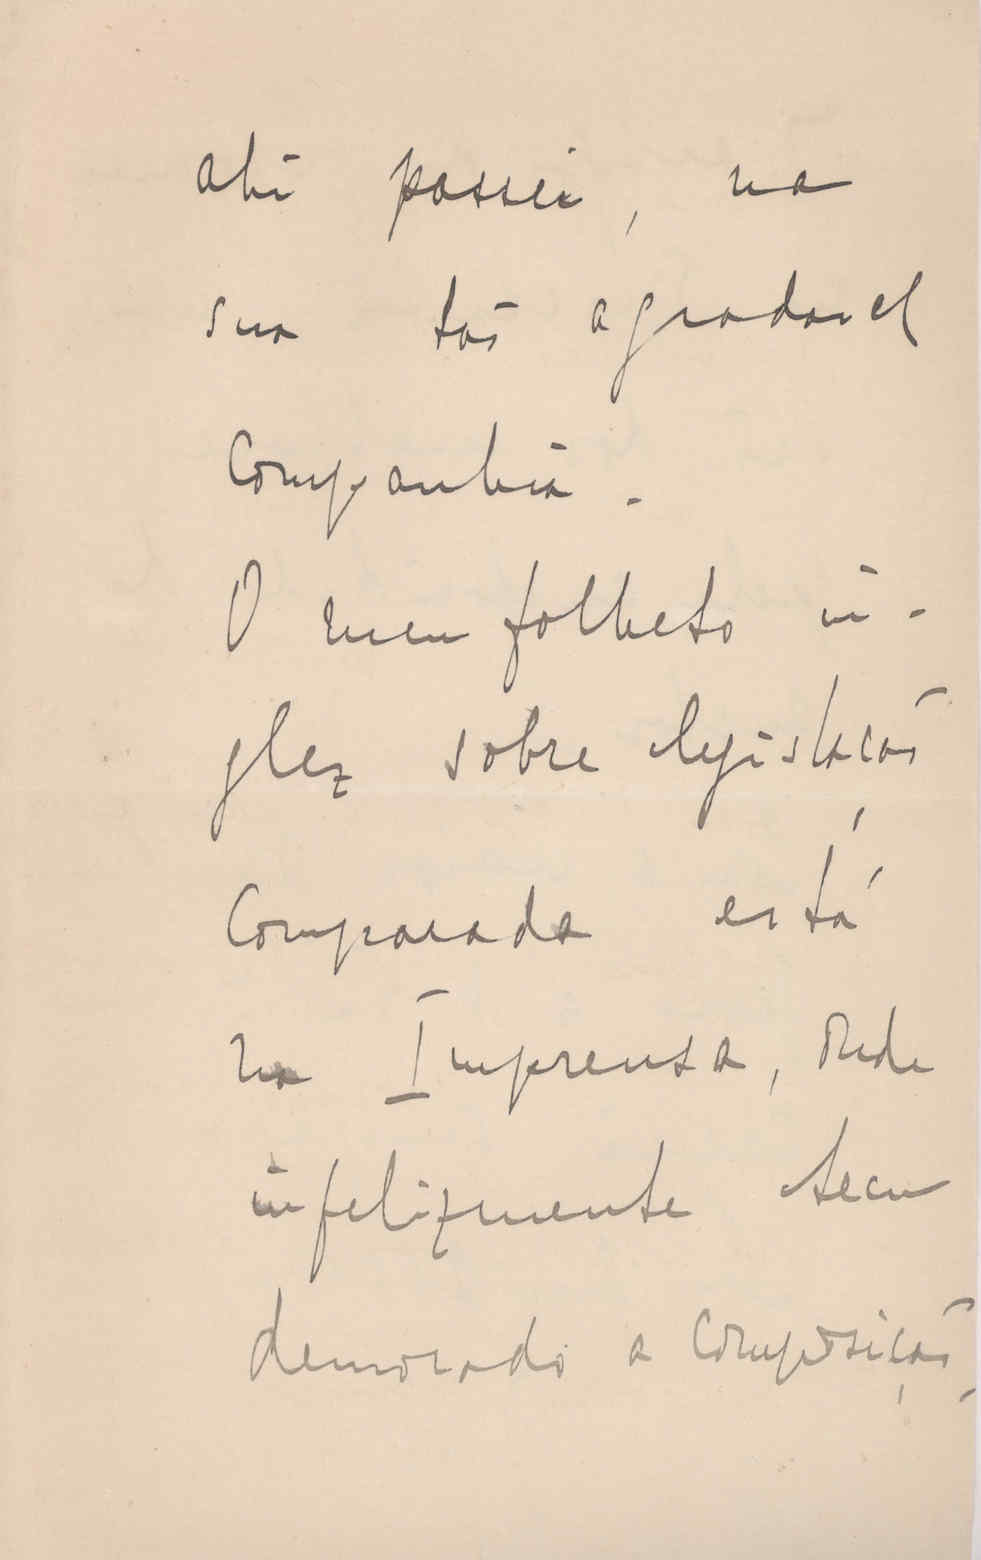 ahi passei, na
sua tão agradavel
companhia.
O meu folheto in-
glez sobre legislação
comparada está
na Imprensa, onde
infelizmente tem
demorado a composição,